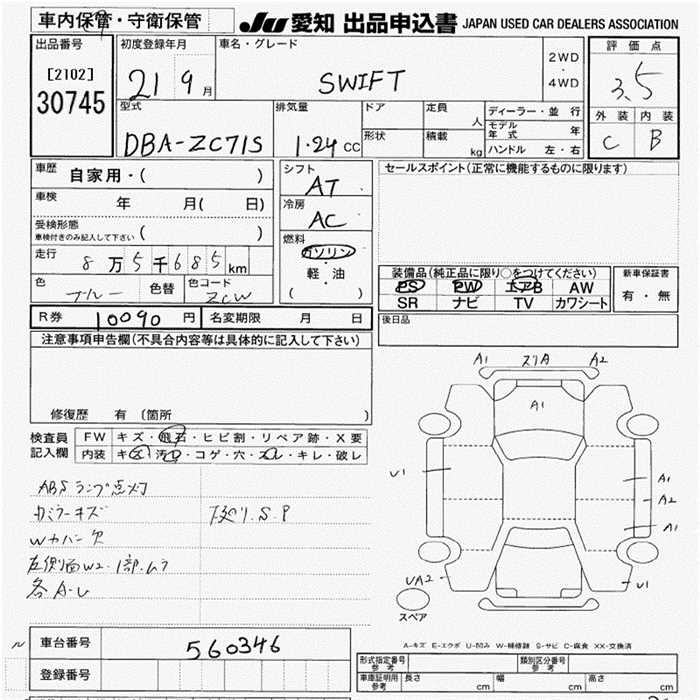 車内保管・守衛保管
JU 愛知 出品申込書 JAPAN USED CAR DEALERS ASSOCIATION
出品番号
[2102]
30745
初度登録年月
21 9月
車名・グレード
SWIFT
2WD
・
4WD
評価点
3.5
外装 内装
C B
型式
DBA-ZC71S
排気量
1.24cc
ドア
定員
人
形状
積載
kg
ディーラー・並行
モデル年式 年
ハンドル 左・右
車歴
自家用・( )
車検
年 月( 日)
受検形態
車検付きのみ記入して下さい ( )
走行
8万5千685km
色
ブルー
色替
色コード
ZCW
シフト
AT
冷房
AC
燃料
ガソリン
・
軽・油
( )
セールスポイント(正常に機能するものに限ります)
装備品(純正品に限り○をつけてください)
PS PW エアB AW
SR ナビ TV カワシート
新車保証書
有・無
後日品
R券 10090円
名変期限 月 日
注意事項申告欄(不具合内容等は具体的に記入して下さい)
修復歴 有 (箇所 )
検査員
記入欄
FW キズ・飛石・ヒビ割・リペア跡・X要
内装 キズ・汚れ・コゲ・穴・スレ・キレ・破レ
ABSランプ点灯
カミラーキズ
下廻り.S.P
Wカバー欠
左側面W2.1部.ムラ
各A.U
A1 スリA A2
A1
U1
A1
A2
A1
UA2
U1
スペア
A-キズ E-エクボ U-凹み W-補修跡 S-サビ C-腐食 XX-交換済
車台番号
560346
登録番号
形式指定番号
参考
類別区分番号
参考
車庫証明用
参考
長さ cm
幅 cm
高さ cm